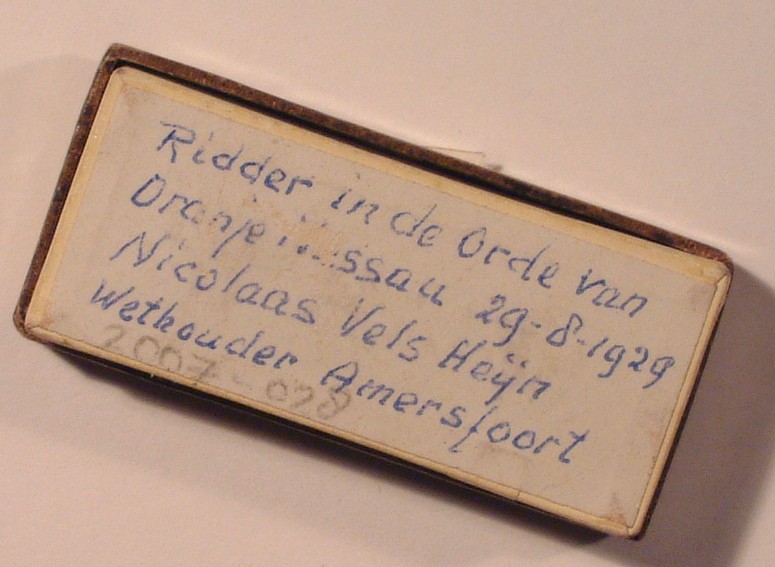 Ridder in de Orde van
Oranje Nassau 29-8-1929
Nicolaas Vels Heijn
Wethouder Amersfoort
2007-028